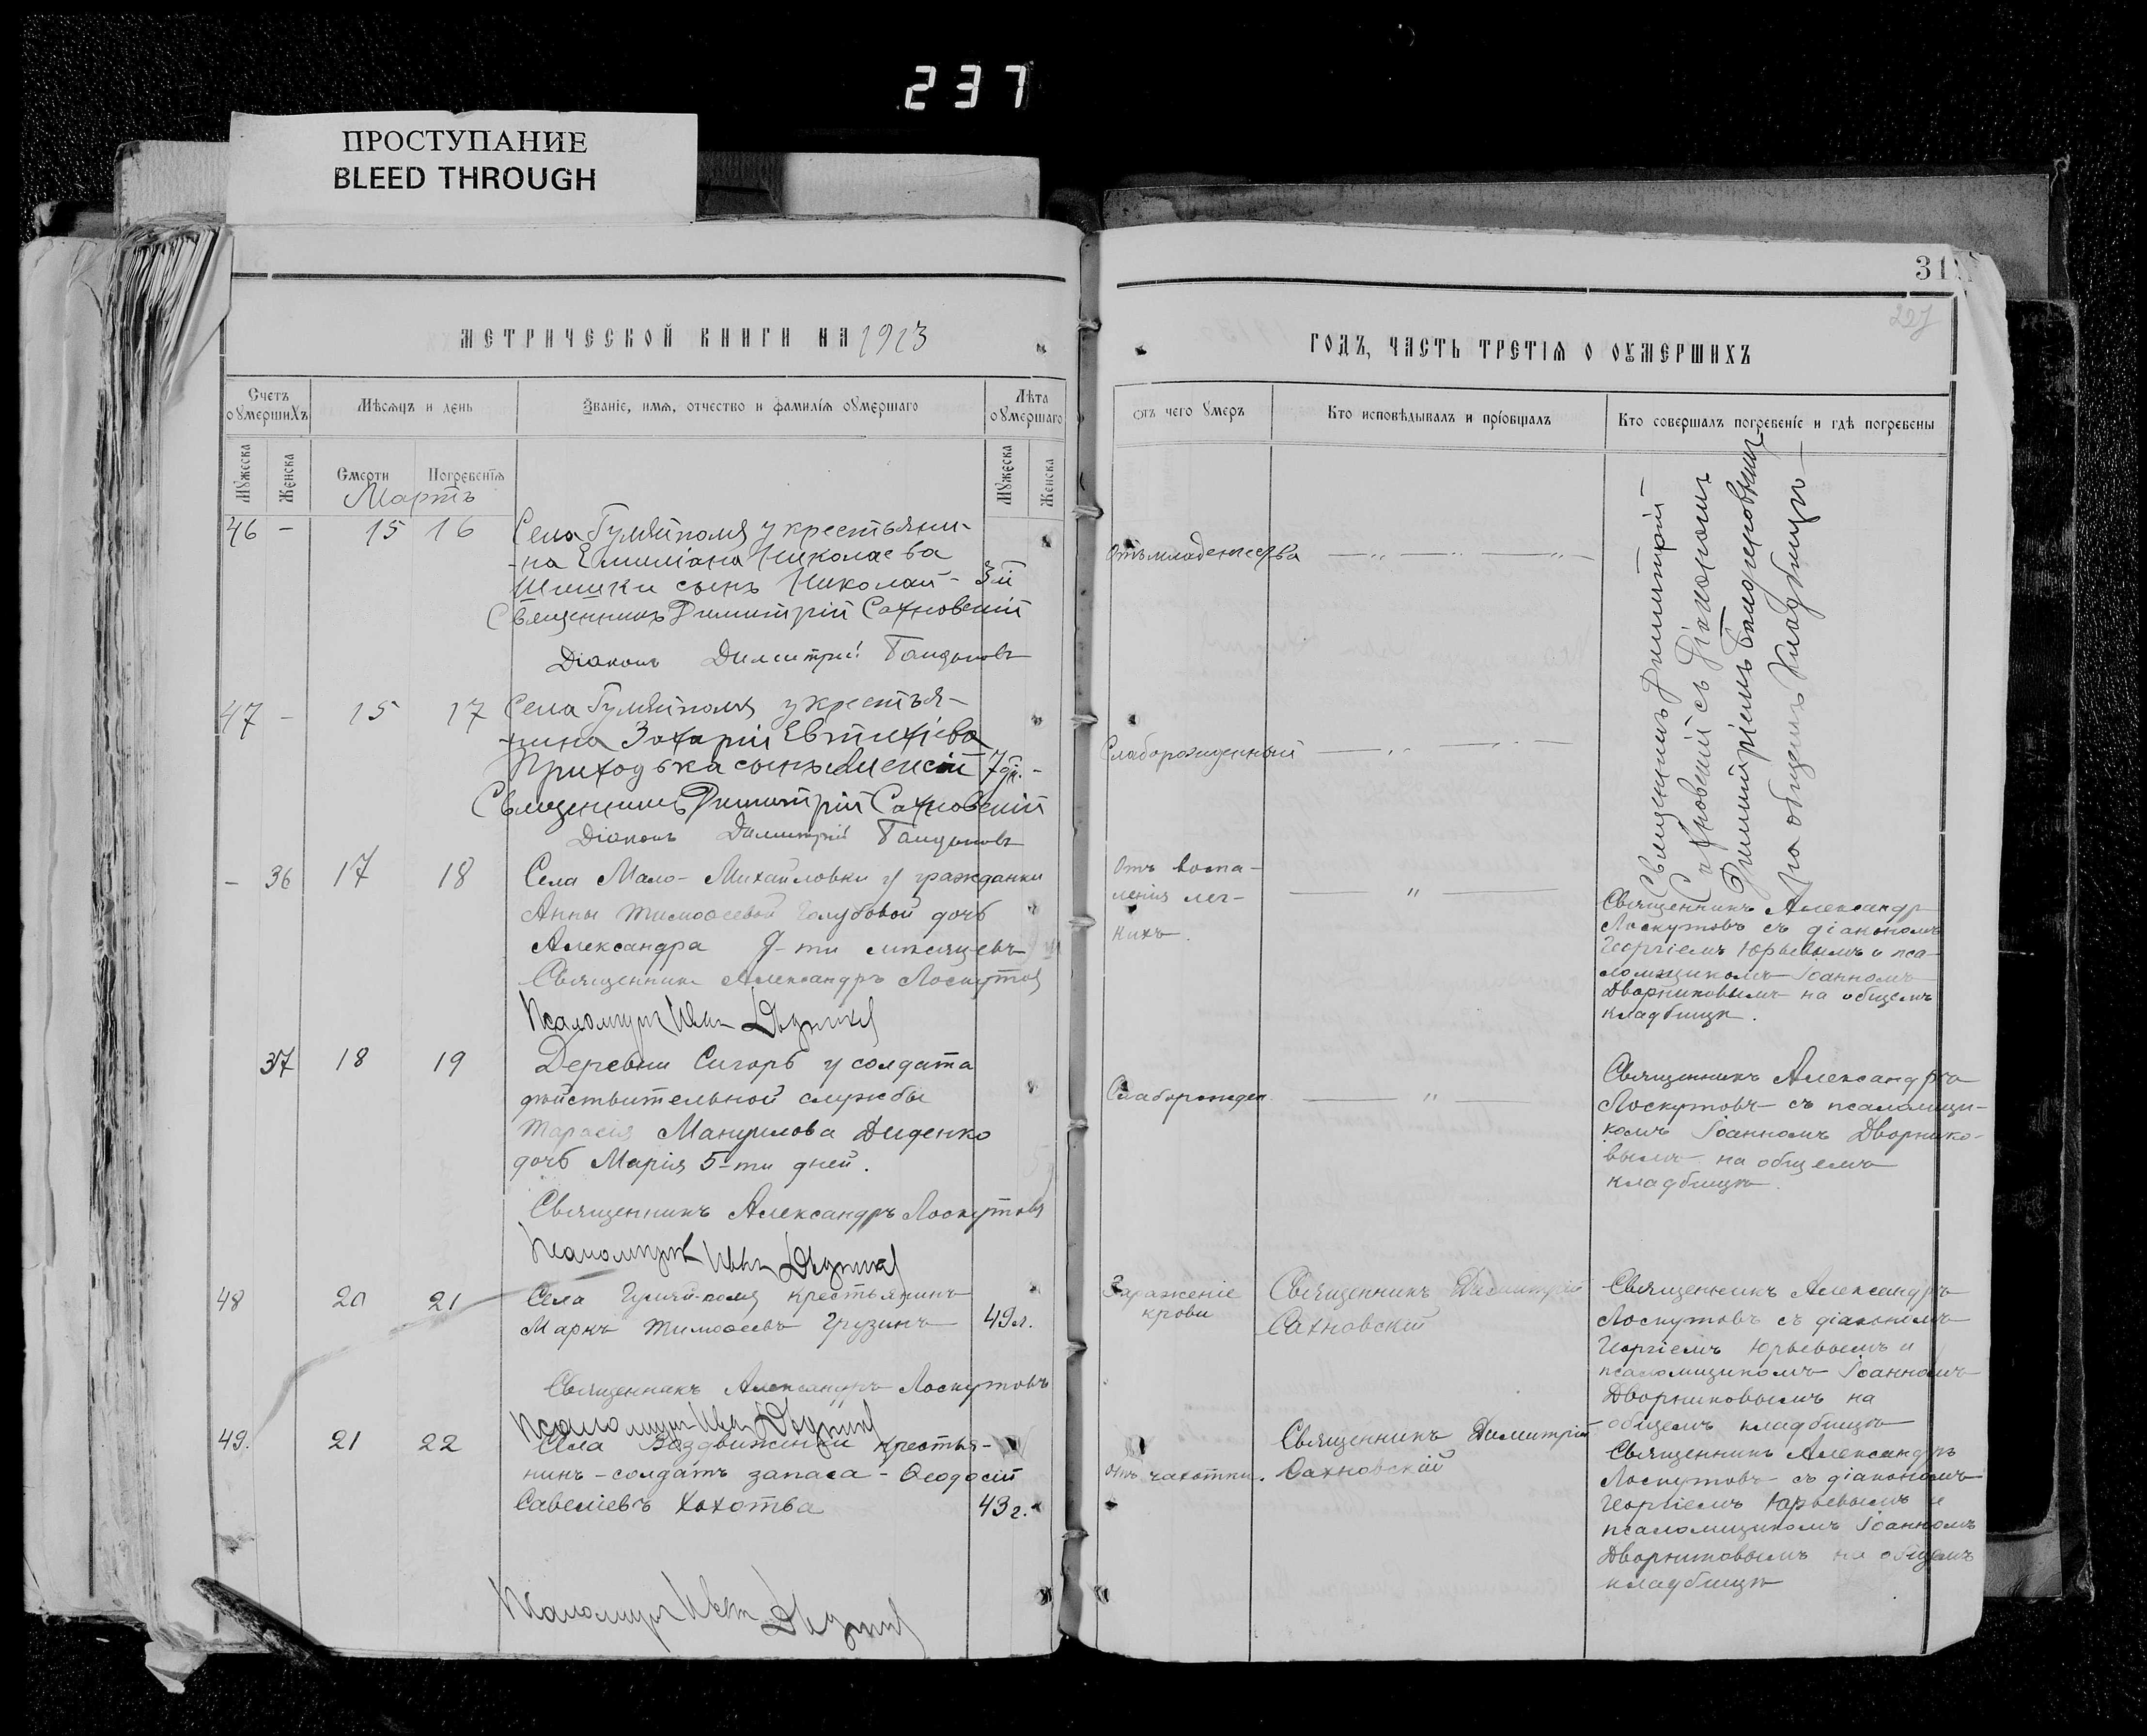 237
ПРОСТУПАНИЕ
BLEED THROUGH
МЕТРИЧЕСКОЙ КНИГИ НА 1913
Счетъ оумершихъ
Мѣсяцъ и день
Званіе, имя, отчество и фамилія оумершаго
Лѣта оумершаго
Мужеска
Женска
Смерти
Погребенія
Мужеска
Женска
Мартъ
46 - 15 16 Села Гуляйполя у крестьяни-
-на Емиліана Николаева
Шишки сынъ Николай - 3
Священникъ Димитрій Сахновскій
Діаконъ Димитрій
47 - 15 17 Села Гуляйполя у крестья-
нина Захарія Евтихіева
Приходька сынъ Алексій 7 дн. -
Священникъ Димитрій Сахновскій
Діаконъ Димитрій
- 36 17 18 Села Мало-Михайловки у гражданки
Анны Тимоѳеевой Голубовой дочь
Александра 9-ти мѣсяцевъ
Священникъ Александръ Лоскутовъ
Псаломщикъ Иванъ Дворниковъ
37 18 19 Деревни Сигоръ у солдата
дѣйствительной службы
Тарасія Мануилова Диденко
дочь Марія 5-ти дней.
Священникъ Александръ Лоскутовъ
Псаломщикъ Иванъ Дворниковъ
48 20 21 Села Гуляй-поля крестьянинъ
Маркъ Тимоѳеевъ Грузинъ 49 л.
Священникъ Александръ Лоскутовъ
Псаломщикъ Иванъ Дворниковъ
49. 21 22 Села Воздвиженки крестья-
нинъ - солдатъ запаса - Ѳеодосій
Савеліевъ Хохотва 43 г.
Псаломщикъ Иванъ Дворниковъ
31
227
ГОДЪ, ЧАСТЬ ТРЕТІЯ О ОУМЕРШИХЪ
Отъ чего умеръ
Кто исповѣдывалъ и пріобщалъ
Кто совершалъ погребеніе и гдѣ погребены
Отъ младенчества
Слаборожденный
Священникъ Димитрій
Сахновскій съ Діакономъ
Димитріемъ
На общемъ кладбищѣ
Отъ воспа-
ленія лег-
кихъ.
Священникъ Александръ
Лоскутовъ съ діакономъ
Георгіемъ Юрьевымъ и пса-
ломщикомъ Іоанномъ
Дворниковымъ на общемъ
кладбищѣ.
Слаборожден.
Священникъ Александръ
Лоскутовъ съ псаломщи-
комъ Іоанномъ Дворнико-
вымъ на общемъ
кладбищѣ.
Зараженіе
крови
Священникъ Димитрій
Сахновскій
Священникъ Александръ
Лоскутовъ съ діакономъ
Георгіемъ Юрьевымъ и
псаломщикомъ Іоанномъ
Дворниковымъ на
общемъ кладбищѣ
отъ чахотки.
Священникъ Димитрій
Сахновскій
Священникъ Александръ
Лоскутовъ съ діакономъ
Георгіемъ Юрьевымъ и
псаломщикомъ Іоанномъ
Дворниковымъ на общемъ
кладбищѣ